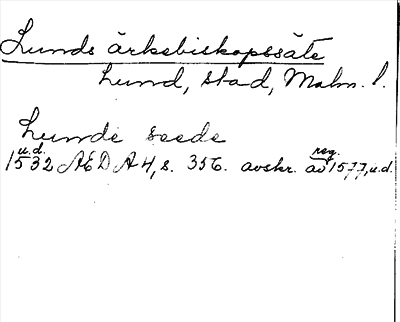 Lunds ärkebiskopssäte
Lund, stad, Malm. l.
Lunde seede
u.d. reg.
1532 ÆDA 4, s. 356. avskr. av 1577, u.d.